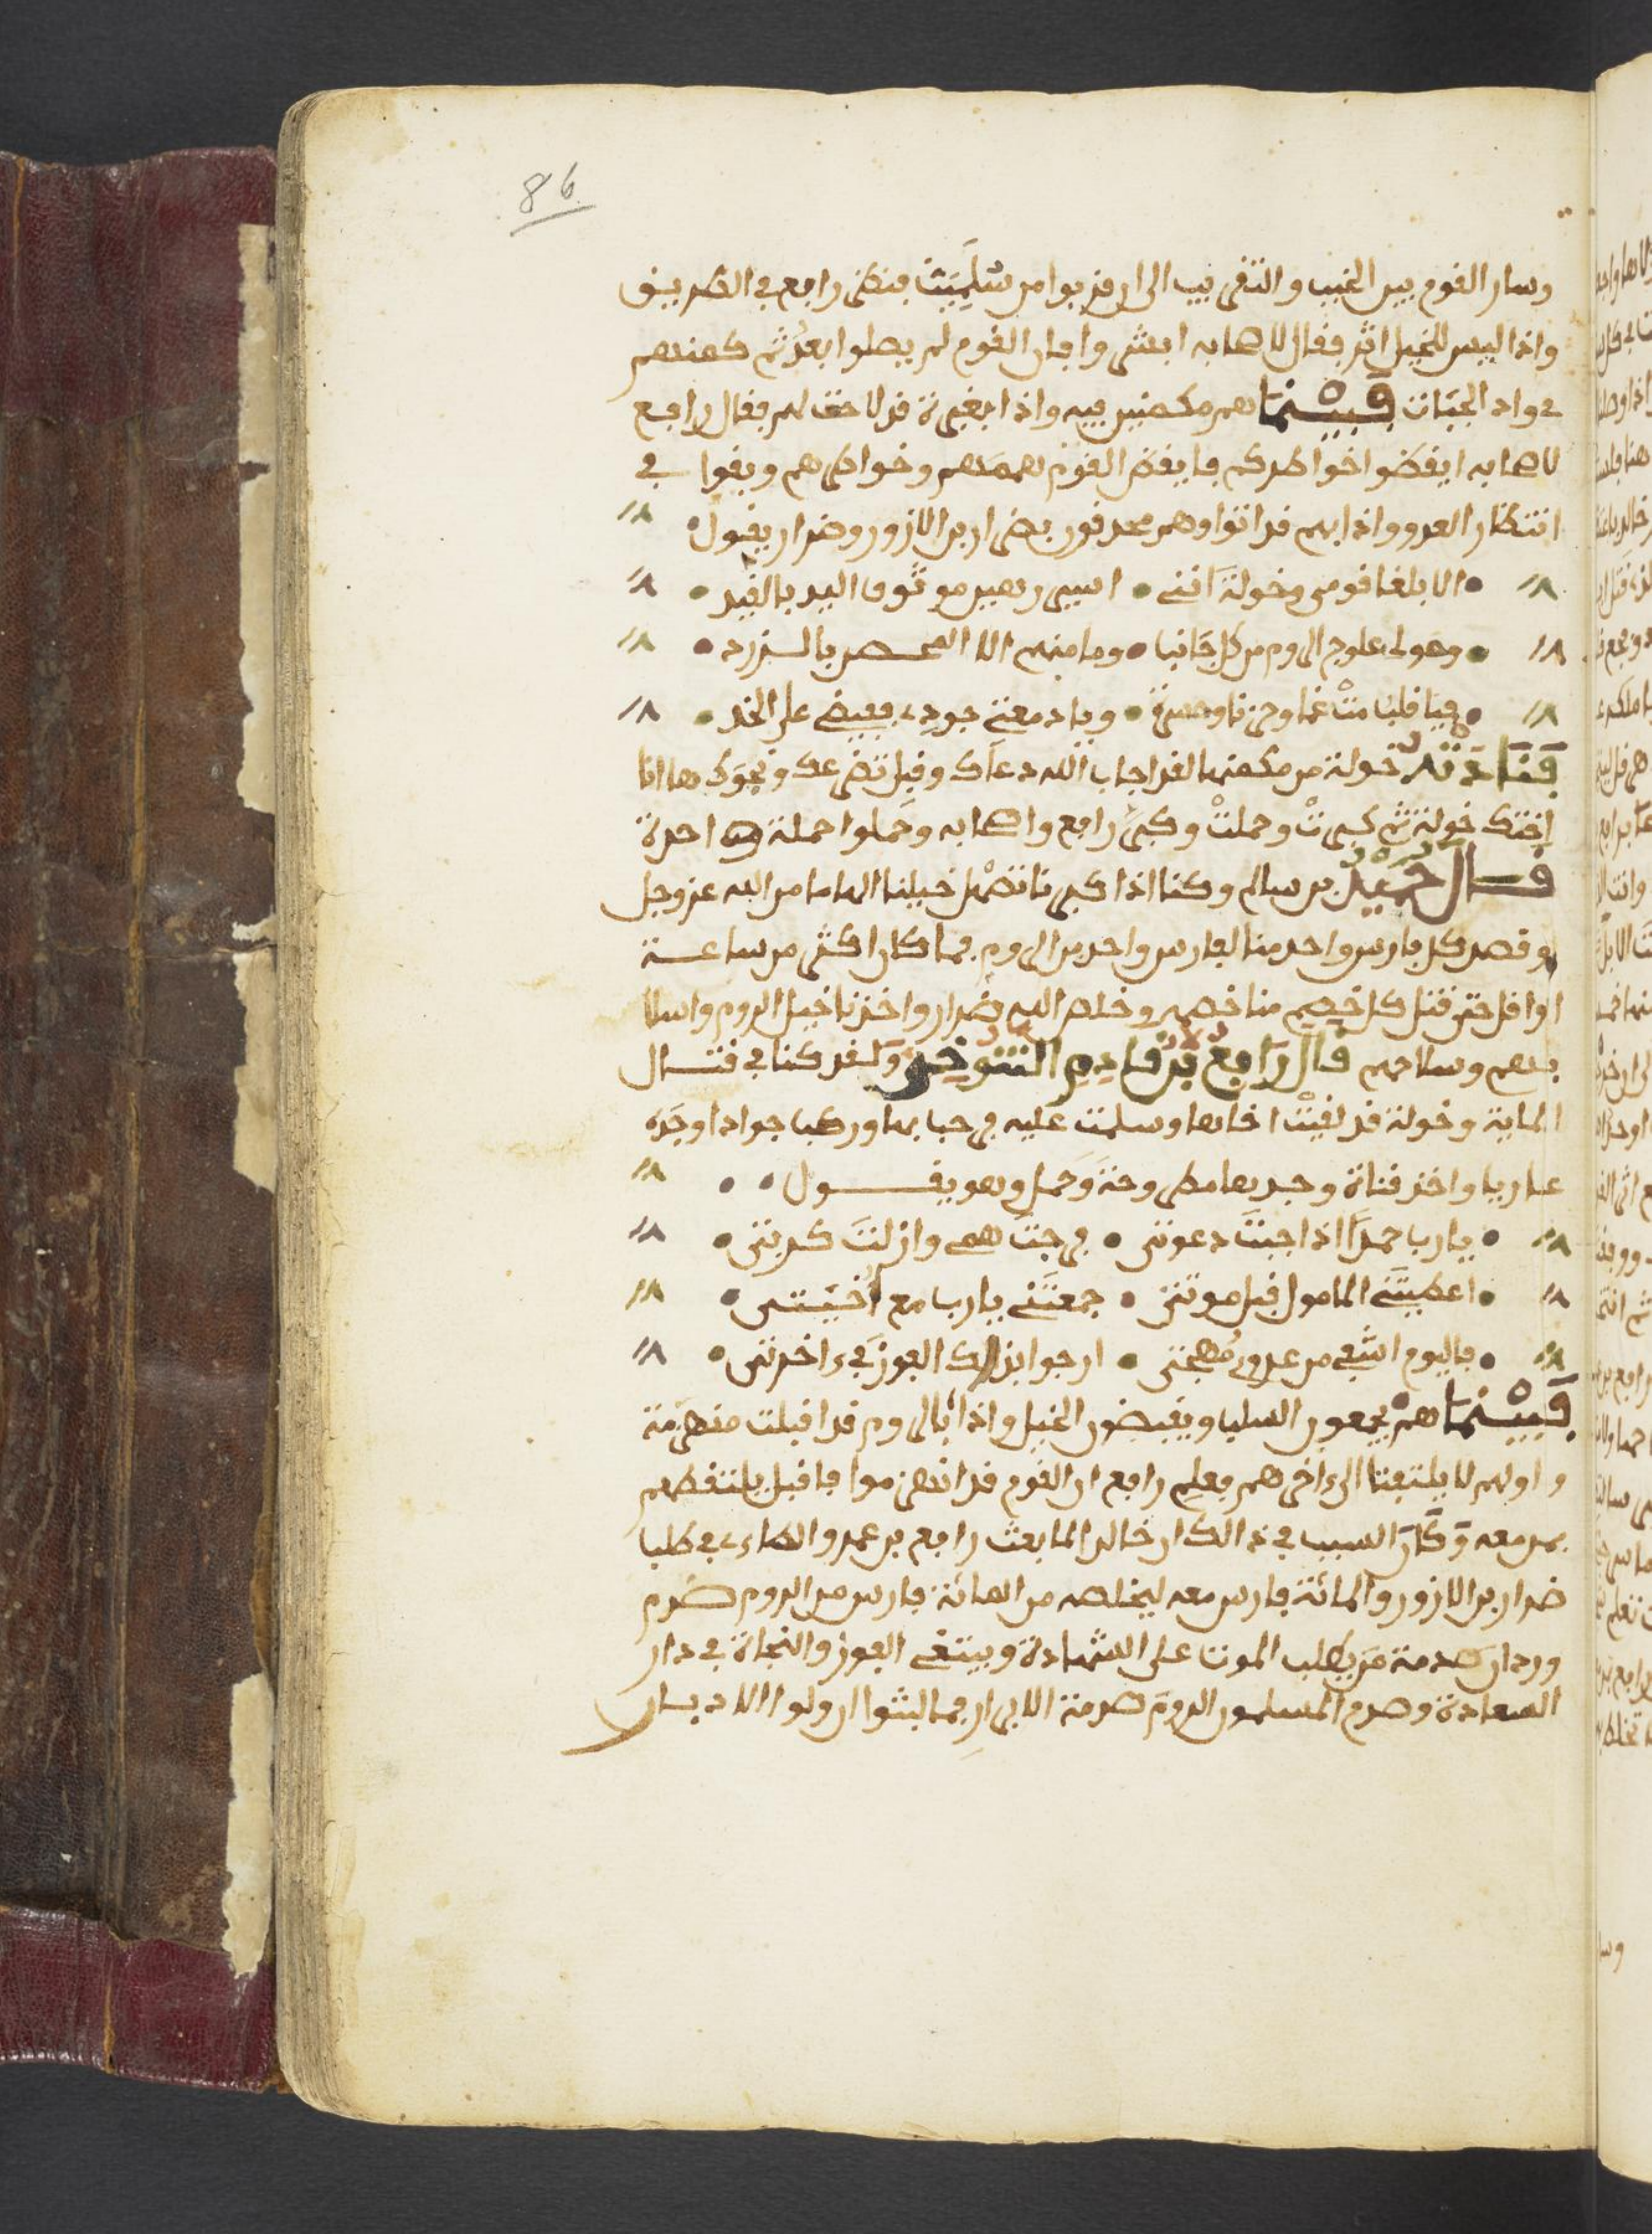 86
وسار القوم بين الخبب والتقريب الى ان قربوا من سَلَمِيَتْ فنظر رافع في الطريق
واذا ليس للخيل اثر فقال لاصحابه ابشروا فان القوم لم يصلوا بعدُ ثم كمن بهم
في واد الحيات فَبَيْنَمَا هم مكمنين فيه واذا بغبرة قد لاحت لهم فقال رافع
لاصحابه ايقظوا خواطركم فايقظ القوم هممهم وخواطرهم وبقوا في
انتظار العدو واذا بهم قد اتوا وهم محدقون بضرار بن الازور وضرار يقول
الا بلغا قومي وخولة انني اسير رهين موثوق اليد بالقيد
وحولي علوج الروم من كل جانب وما منهم الا المحصن بالزرد
فيا قلب مت غما وحزنا وحسرة ويا دمعتي جودي ففيضي على الخد
فَنَادَتْهُ خولة من مكمنها لقد اجاب الله دعاك وقبل تضرعك ونجواك ها انا
اختك خولة ثم كبرت وحملت وكبر رافع واصحابه وحملوا حملة واحدة
قال حُمَيْد بن سالم وكنا اذا كبرنا تصهل خيلنا الهاما من الله عز وجل
وقصد كل فارس واحد منا لفارس واحد من الروم فما كان اكثر من ساعة
او اقل حتى قتل كل خصم منا خصمه وخلص الله ضرار واخذنا خيل الروم واسلا
بهم وسلاحهم قال رَافِع بْن قَادِم التنوخي وَلقد كنا في قتال
الماية وخولة قد لقيت اخاها وسلمت عليه فرحبا بها وركب جوادا وجده
عاريا واخذ قناة وجدها مطروحة وحمل وهو يقول
يا رب حمدا اذ اجبت دعوتي فرجت همي وازلت كربتي
اعطيتني المامول قبل موتتي جمعتني يا رب مع اُخيتي
فاليوم اشفي من عدوي مهجتي ارجوا بذالك الفوز في ءاخرتي
فَبَيْنَمَا هم يجمعون السلب ويقبضون الخيل واذا بالروم قد اقبلت منهزمة
واولهم لا يلتفت الى ءاخرهم فعلم رافع ان القوم قد انهزموا فاقبل يلتقطهم
بمن معه وَكَانَ السبب في ذالك ان خالد لما بعث رافع بن عمرو الطاءي في طلب
ضرار بن الازور والمائة فارس معه ليخلصه من المائة فارس من الروم صدم
وردان صدمة من يطلب الموت على الشهادة ويبتغي الفوز والنجاة في دار
السعادة وصدم المسلمون الروم صدمة الابرار فما لبثوا ان ولوا الادبار